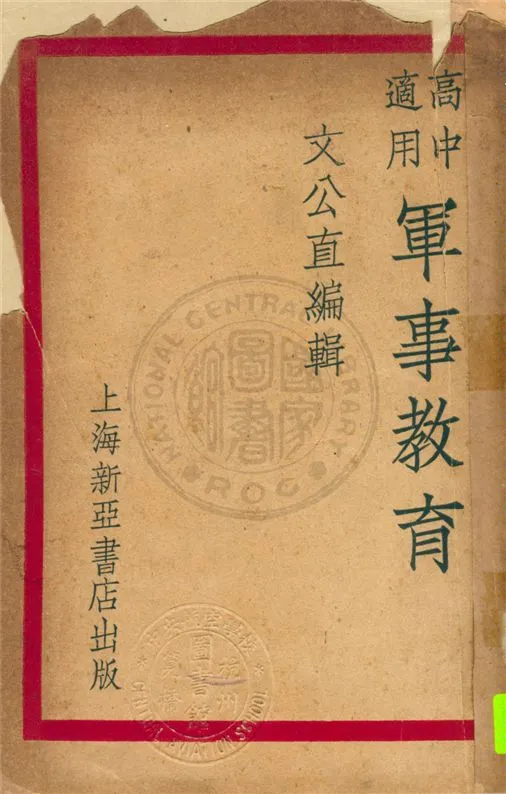 高中
適用
軍事教育
文公直編輯
上海新亞書店出版
NATIONAL CENTRAL LIBRARY
ROC
國家
圖書
杭州
圖書館
筧橋
CENTRAL AVIATION SCHOOL